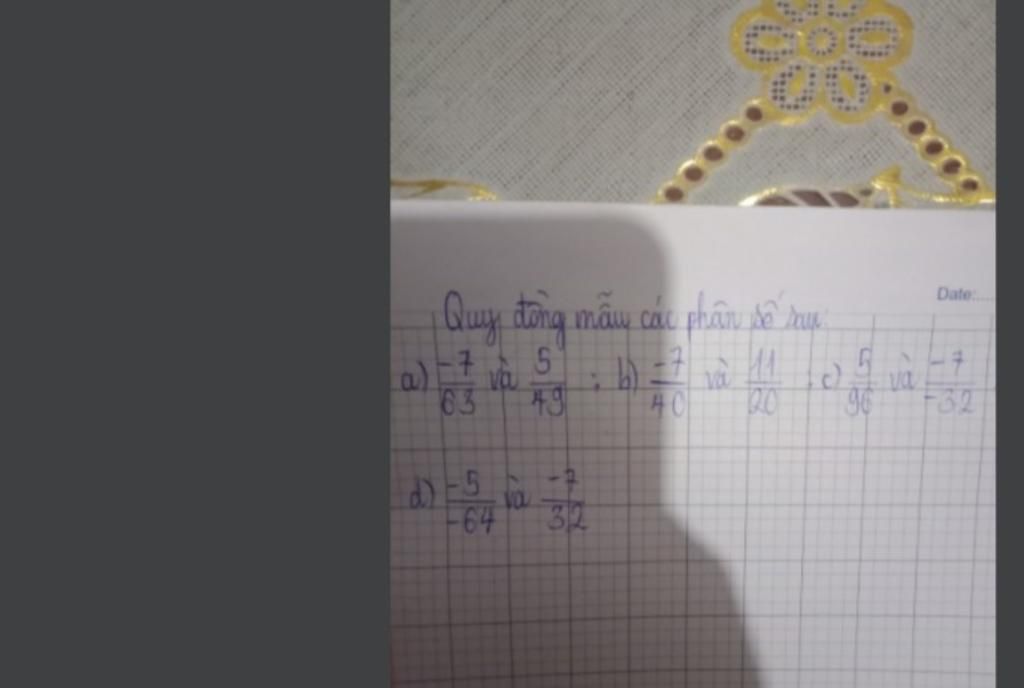 Date:....
Quy đồng mẫu các phân số sau:
a) -7/63 và 5/49 ; b) -7/40 và 11/20 ; c) 5/96 và -7/-32
d) -5/-64 và -7/32